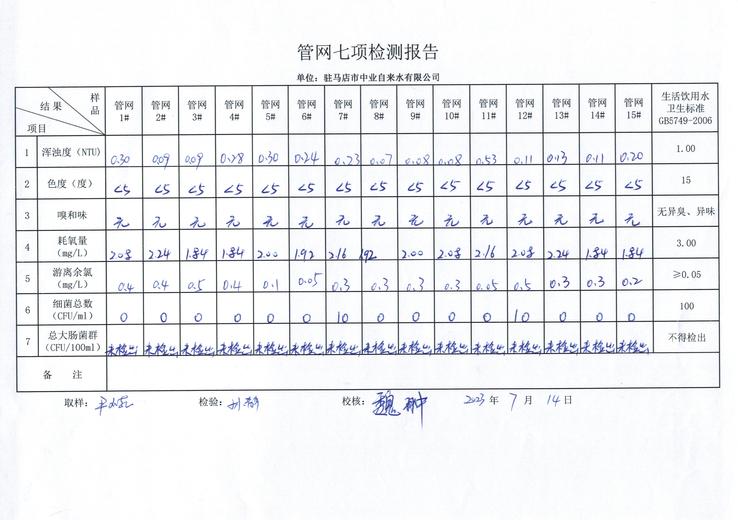 管网七项检测报告
单位：驻马店市中业自来水有限公司
结果 样品 项目 管网1# 管网2# 管网3# 管网4# 管网5# 管网6# 管网7# 管网8# 管网9# 管网10# 管网11# 管网12# 管网13# 管网14# 管网15# 生活饮用水卫生标准GB5749-2006
1 浑浊度（NTU） 0.30 0.09 0.09 0.28 0.30 0.24 0.23 0.07 0.08 0.08 0.53 0.11 0.13 0.11 0.20 1.00
2 色度（度） <5 <5 <5 <5 <5 <5 <5 <5 <5 <5 <5 <5 <5 <5 <5 15
3 嗅和味 无 无 无 无 无 无 无 无 无 无 无 无 无 无 无 无异臭、异味
4 耗氧量（mg/L） 2.08 2.24 1.84 1.84 2.00 1.92 2.16 1.92 2.00 2.08 2.16 2.08 2.24 1.84 1.84 3.00
5 游离余氯（mg/L） 0.4 0.4 0.5 0.4 0.1 0.05 0.3 0.3 0.3 0.3 0.05 0.5 0.3 0.3 0.2 ≥0.05
6 细菌总数（CFU/ml） 0 0 0 0 0 0 10 0 0 0 0 10 0 0 0 100
7 总大肠菌群（CFU/100ml） 未检出 未检出 未检出 未检出 未检出 未检出 未检出 未检出 未检出 未检出 未检出 未检出 未检出 未检出 未检出 不得检出
备 注
取样： 检验： 校核：魏 2023年 7月 14日